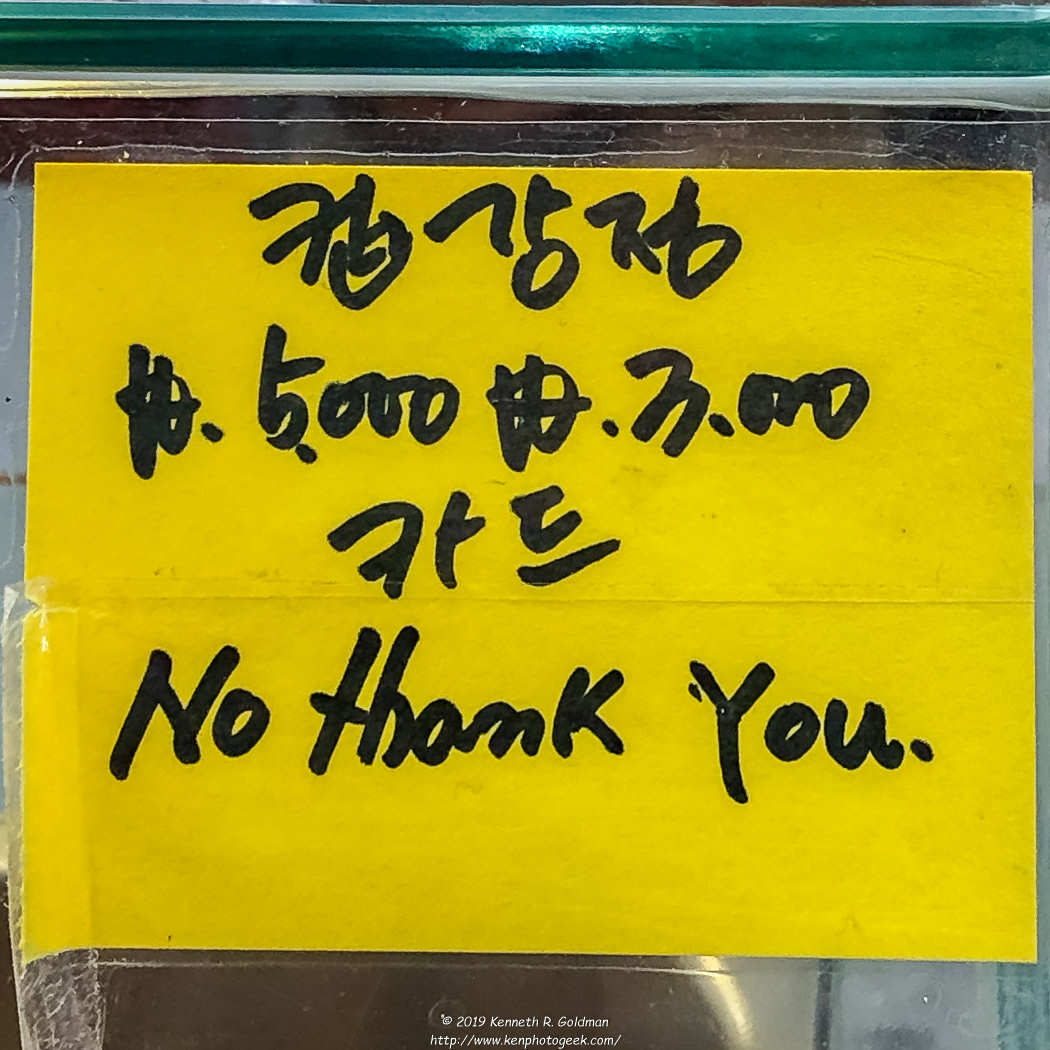 컵강정
₩. 5,000 ₩.3,000
카드
No thank You.
© 2019 Kenneth R. Goldman
http://www.kenphotogeek.com/